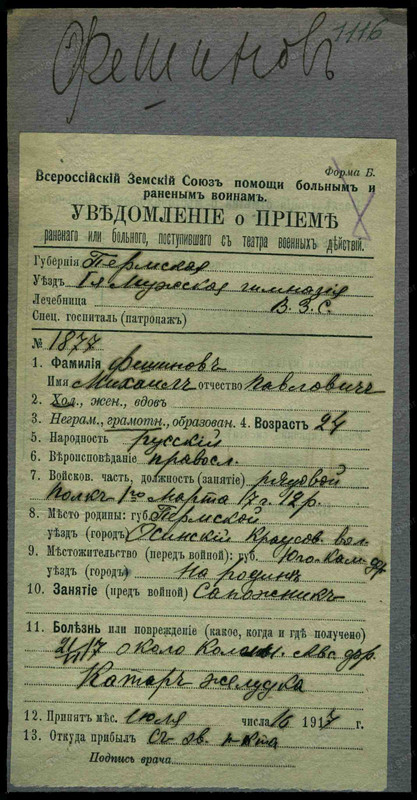 Фешиновъ 1116
Форма Б.
Всероссійскій Земскій Союзъ помощи больнымъ и
раненымъ воинамъ.
УВѢДОМЛЕНІЕ о ПРІЕМѢ
раненаго или больного, поступившаго съ театра военныхъ дѣйствій.
Губернія Пермская
Уѣздъ Гл Мужская гимназія
Лечебница В. З. С.
Спец. госпиталь (патронажъ)
№ 1877
1. Фамилія Фешиновъ
Имя Михаилъ отчество Павловичъ
2. Хол., жен., вдовъ
3. Неграм., грамотн., образован. 4. Возрастъ 24
5. Народность русскій
6. Вѣроисповѣданіе правосл.
7. Войсков. часть, должность (занятіе) рядовой
полкъ 1го Марта 17 г. 12 р.
8. Мѣсто родины: губ. Пермской
уѣздъ (городъ) Осинскій вол.
9. Мѣстожительство (передъ войной): губ. Юго-Кам.
уѣздъ (городъ) на родинѣ
10. Занятіе (предъ войной) Сапожникъ
11. Болѣзнь или поврежденіе (какое, когда и гдѣ получено)
17 около
Катарръ желудка
12. Принятъ мѣс. Іюля числа 16 1917 г.
13. Откуда прибылъ съ эв. п-кта
Подпись врача